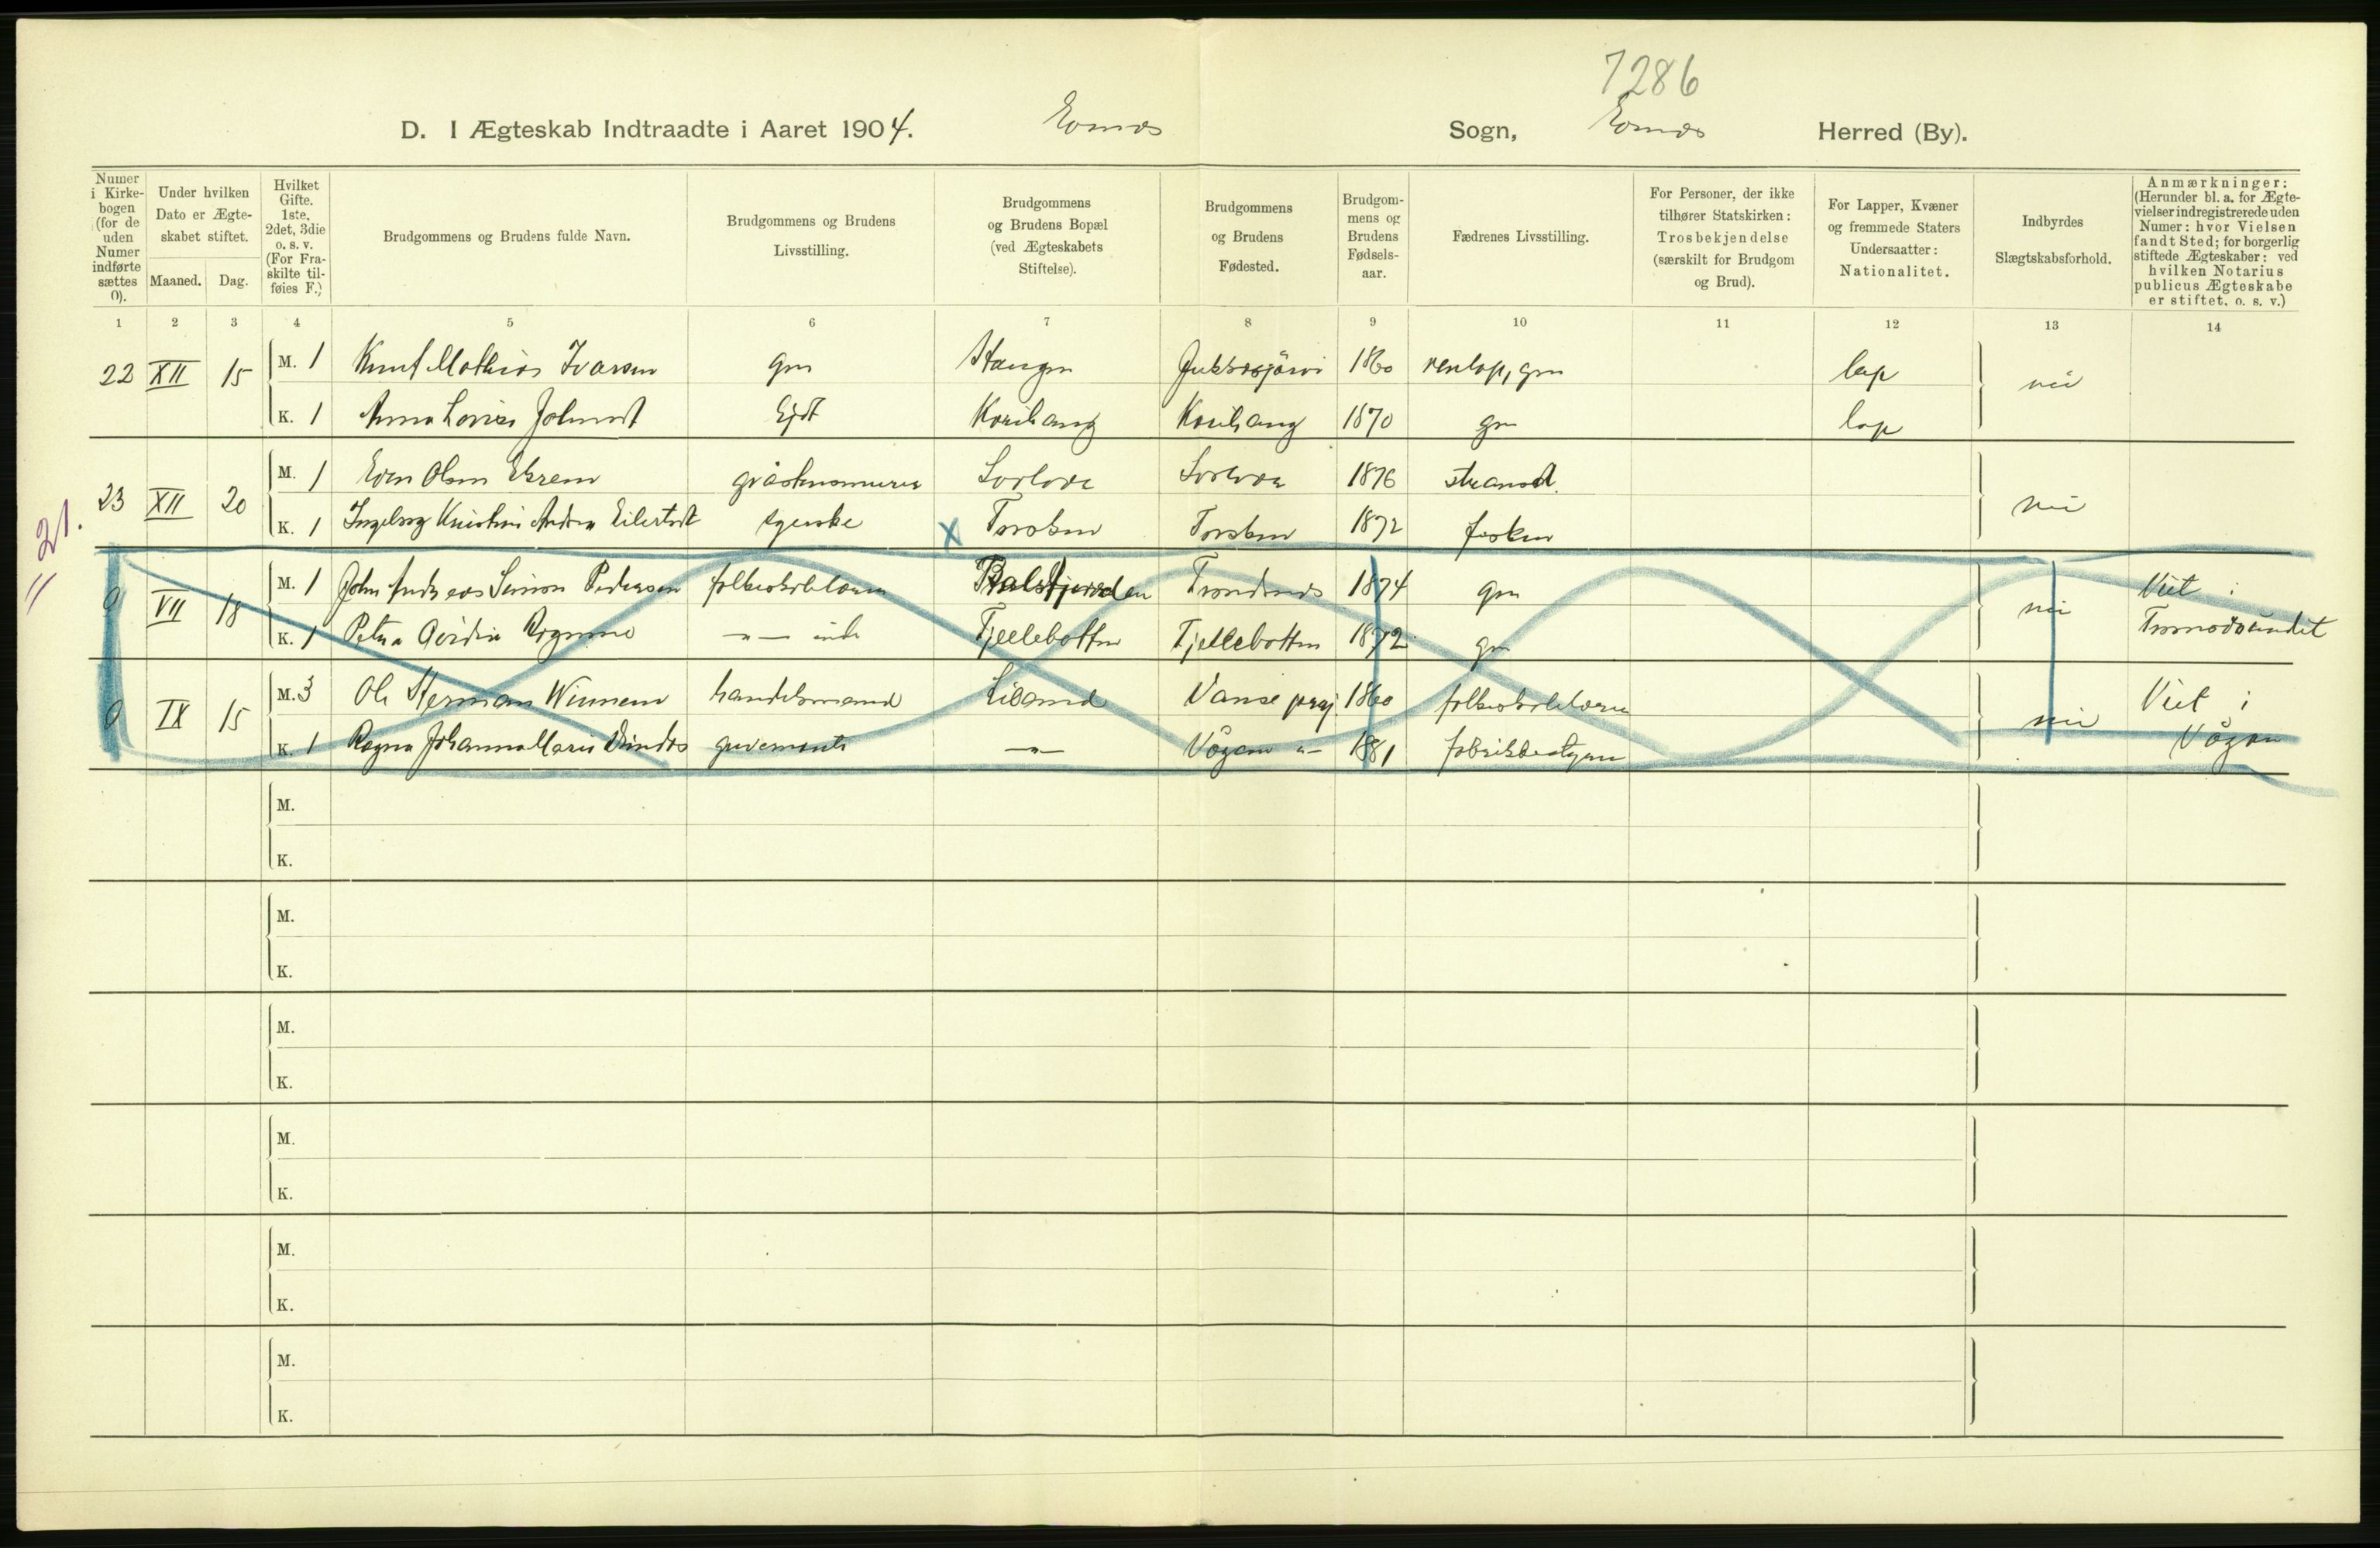 7286
D. I Ægteskab Indtraadte i Aaret 1904. Sogn, Herred (By).
Numer i Kirkebogen (for de uden Numer indførte sættes 0).
Under hvilken Dato er Ægteskabet stiftet.
Maaned. Dag.
Hvilket Gifte. 1ste, 2det, 3die o. s. v. (For Fraskilte tilføies F.)
Brudgommens og Brudens fulde Navn.
Brudgommens og Brudens Livsstilling.
Brudgommens og Brudens Bopæl (ved Ægteskabets Stiftelse).
Brudgommens og Brudens Fødested.
Brudgommens og Brudens Fødselsaar.
Fædrenes Livsstilling.
For Personer, der ikke tilhører Statskirken: Trosbekjendelse (særskilt for Brudgom og Brud).
For Lapper, Kvæner og fremmede Staters Undersaatter: Nationalitet.
Indbyrdes Slægtskabsforhold.
Anmærkninger: (Herunder bl. a. for Ægtevielser indregistrerede uden Numer: hvor Vielsen fandt Sted; for borgerlig stiftede Ægteskaber: ved hvilken Notarius publicus Ægteskabe er stiftet. o. s. v.)
1 2 3 4 5 6 7 8 9 10 11 12 13 14
22 XII 15 M. 1 Knut Mathias Ivarsen gm Stangen Jukkasjärvi 1860 renlap, gm lap nei
K. 1 Anna Lovisa Johnsdt Kovikang Kovikang 1870 gm lap
23 XII 20 M. 1 Olsen 1876 nei
K. 1 Ingeborg Kristine Andrea Eilertsdt syerske x Torsken Torsken 1872
= 21.
0 VII 18 M. 1 John Andreas Simon Pedersen folkeskolelærer Balsfjorden Trondenes 1874 gm nei Viet i Tromsøsundet
K. 1 Petra Rognmo —"— inde Fjellebotten Fjellebotten 1872 gm
0 IX 15 M. 3 Ole Herman Winnem handelsmand Vanse præj. 1860 folkeskolelærer nei Viet i Vågan
K. 1 Ragna Johanna Marie guvernante —"— Vågan —"— 1881 fabrikbestyrer
M.
K.
M.
K.
M.
K.
M.
K.
M.
K.
M.
K.